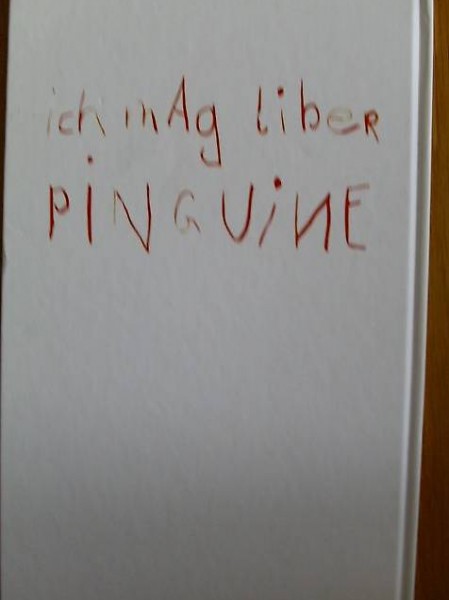 ich mAg liber
PiNGUiNE